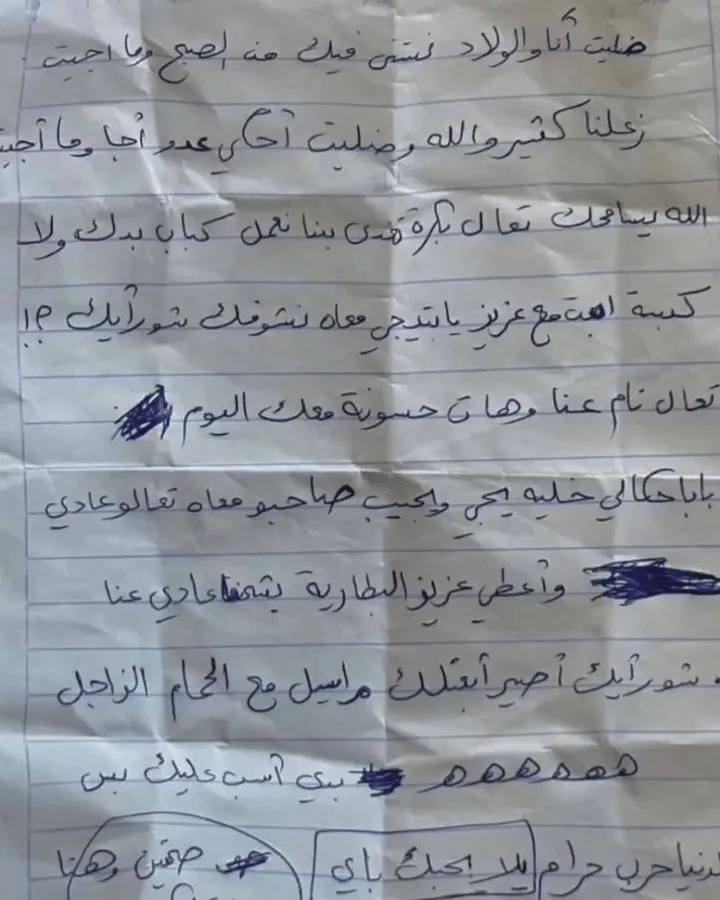 ضليت أنا والولاد نستنى فيك من الصبح وما اجيت .
زعلنا كثير والله وضليت أحكي عدو أجا وما أجيت
الله يسامحك تعال بكرة بنا نعمل كباب بدك ولا
كبسة ابعت مع عزيز يا بتيجي معاه نشوفك شو رأيك ؟!
تعال نام عنا وهات حسونة معك اليوم
بابا حكالي خليه يجي ويجيب صاحبو معاه تعالو عادي
وأعطي عزيز البطارية بشحنها عادي عنا
شو رأيك أصير أبعتلك مراسيل مع الحمام الزاجل
ههههههه بدي أسب عليك بس
لدنيا حرب حرام يلا بحبك باي صحتين وهنا